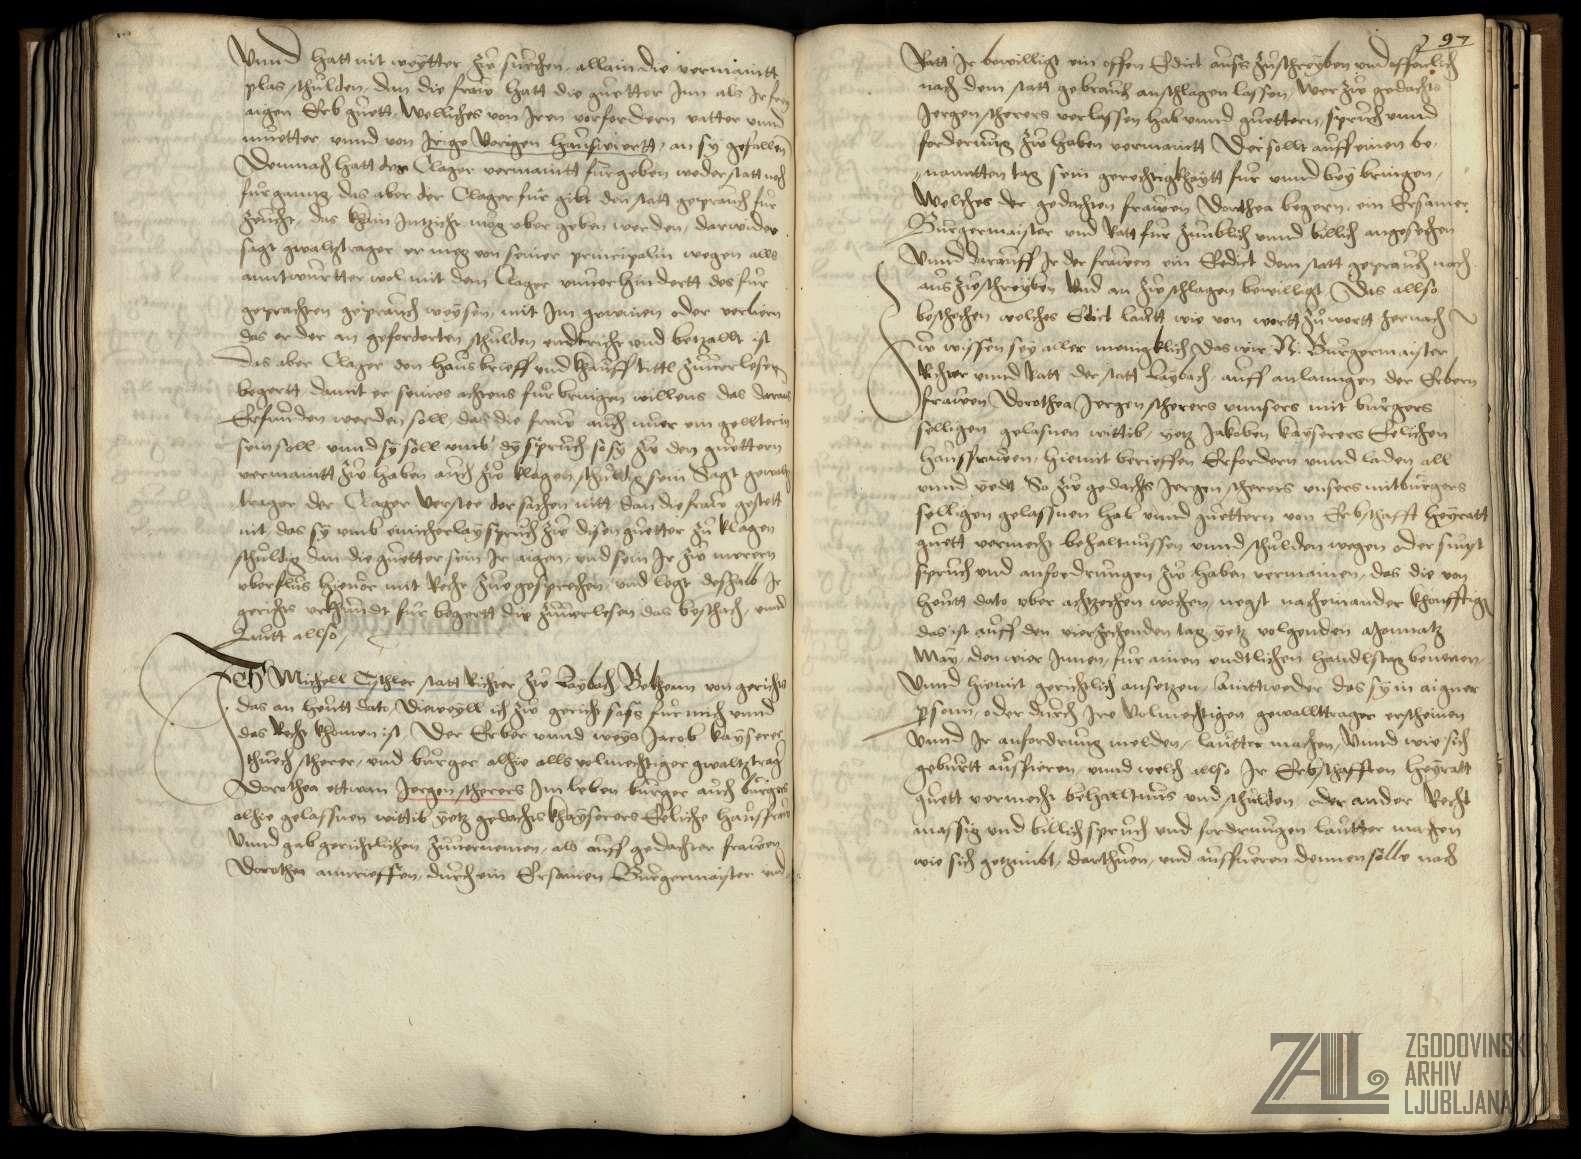 Vnnd hatt nit weÿtter zw suechen, allain die vermaintt
plos schulden, dan die fraw hatt die guetter Inn als Ir frey
aigen Erb guett, Welliches von Iren vorfordern vatter vnnd
muetter vnnd von Irige Vorigen hauswiertt, an sy gefallen
Demnach hatt des Clager vermaintt furgeben weder statt noch
furganng, das aber der Clager fur gibt den statt geprauch fur
zeucht, das khain Inzicht mög vber geben werden, darwider
sagt gwaltstrager er mög von seiner principalin wegen alls
anntwurtter wol mit dem Clager vnuerhindertt des fur
geprachten geprauch weysen, mit Im gewinen oder verliern
das er der an geforderten schulden endtricht vnd betzallt ist
Das aber Clager den hausbrieff vnd khauff tittl zuuerlesen
begertt damit er seines achtens fur bringen willens das daraus
Erfunden werden soll, das die fraw auch nuer ein gellterin
sein soll vnnd sy soll vmb dÿ spruch so sy zw den guettern
vermaintt zw haben auch zw klagen schuldig sein, sagt gwaltz
trager der Clager Verstee der sachen nitt, dan die fraw gestett
nit, das sy vmb einicherlaÿ spruch zw disen guetter zu klagen
schuldig, dan die guetter sein Ir aigen, vnd sein Ir zw merern
vberflus hieuor mit Recht zuegesprochen, vnd legt deshalb Ir
gerichts vrkhundt fur begertt die zuuerlesen das beschach, vnnd
Lautt allso,
Ich Michell Tyschler statt Richter zw Laÿbach, Bekhenn von gerichts
das an heutt dato, Dieweÿll ich zw gericht sass fur mich vnnd
das Recht khomen ist, Der Erber vnnd weÿs Jacob kaÿserer
thuech scherer, vnd burger alhie alls volmechtiger gwaltztrager
Dorothea ettwan Jergen scherers Im leben burger auch burgers
alhie gelassnen wittib yetz gedachts khaÿserers Eeliche hausfraw
Vnnd gab gerichtlichen zuuernemen, als auff gedachter frawen
Dorothea anrueffen, durch ein Ersamen Burgermaister vnd
297
Ratt Ir bewilligt ein offen Edict auss zuschreÿben vnd offenlich
nach dem statt gebrauch anschlagen lassen, Wer zw gedachts
Jergen scherers verlassen hab vnnd guettern, spruch vnnd
forderung zw haben vermaintt Der sollt auff einen be-
nanntten tag sein gerechtigkhaÿtt fur vnnd beÿ bringen,
Welches der gedachten frawen Dorothea begern, ein Ersamer
Burgermaister vnd Ratt fur zimblich vnnd billich angesechen
Vnnd darauff Ir der frawen ein Eedict dem statt geprauch nach
aus zwschreÿben vnd an zw schlagen bewilligt, Das allso
beschechen welches Edict lautt wie von wortt zu wortt hernach
w wissen seÿ aller menigklich, Das wir N. Burgermaister
Richter vnnd Ratt der statt Laÿbach, auff anlanngen der Erbern
frawen Dorothea Jergen scherers vnnsers mit burgers
selligen gelasnen wittib, yetz Jakoben kaÿserers Eelichen
hausfrawen, hiemit berieffen Erfordern vnnd laden all
vnnd yedt So zw gedachts Jergen scherers vnsers mitburgers
selligen gelassnen hab vnnd guettern von Erbschafft heÿratt
guett vermecht behaltnussen vnnd schulden wegen oder sunst
spruch vnd anfordrungen zw haben vermainen, das die von
heutt dato vber achtzechen wochen, negst nacheinander khonfftig
das ist auff den vierzechenden tag yetz volgenden Monnatz
Maÿ, den wier Innen, fur ainen endtlichen handlstag benenen,
Vnnd hiemit gerichtlich ansetzen, Aintweder das sy in aigner
person, oder durch Ire Volmechtigen gewallttrager erscheinen
Vnnd Ir anfordrung melden, lautter machen, Vnnd wie sich
geburtt ausfieren, vnnd welch allso Ir Erbschafften heÿratt
guett vermecht behalltnus vnd schulden oder ander Recht
massig vnd billich spruch vnd fordrungen lautter machen
wie sich gezimbt, darthuen, vnd ausfueren dennen solle nach
ZGODOVINSKI
ARHIV
LJUBLJANA